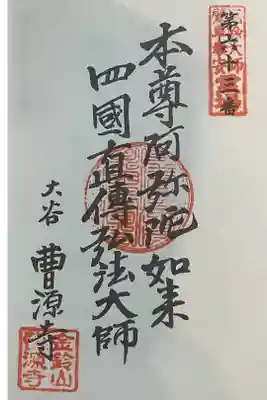 第六十三番
本尊阿弥陀如来
四國直傳弘法大師
大谷 曹源寺
金鈴山
曹源寺